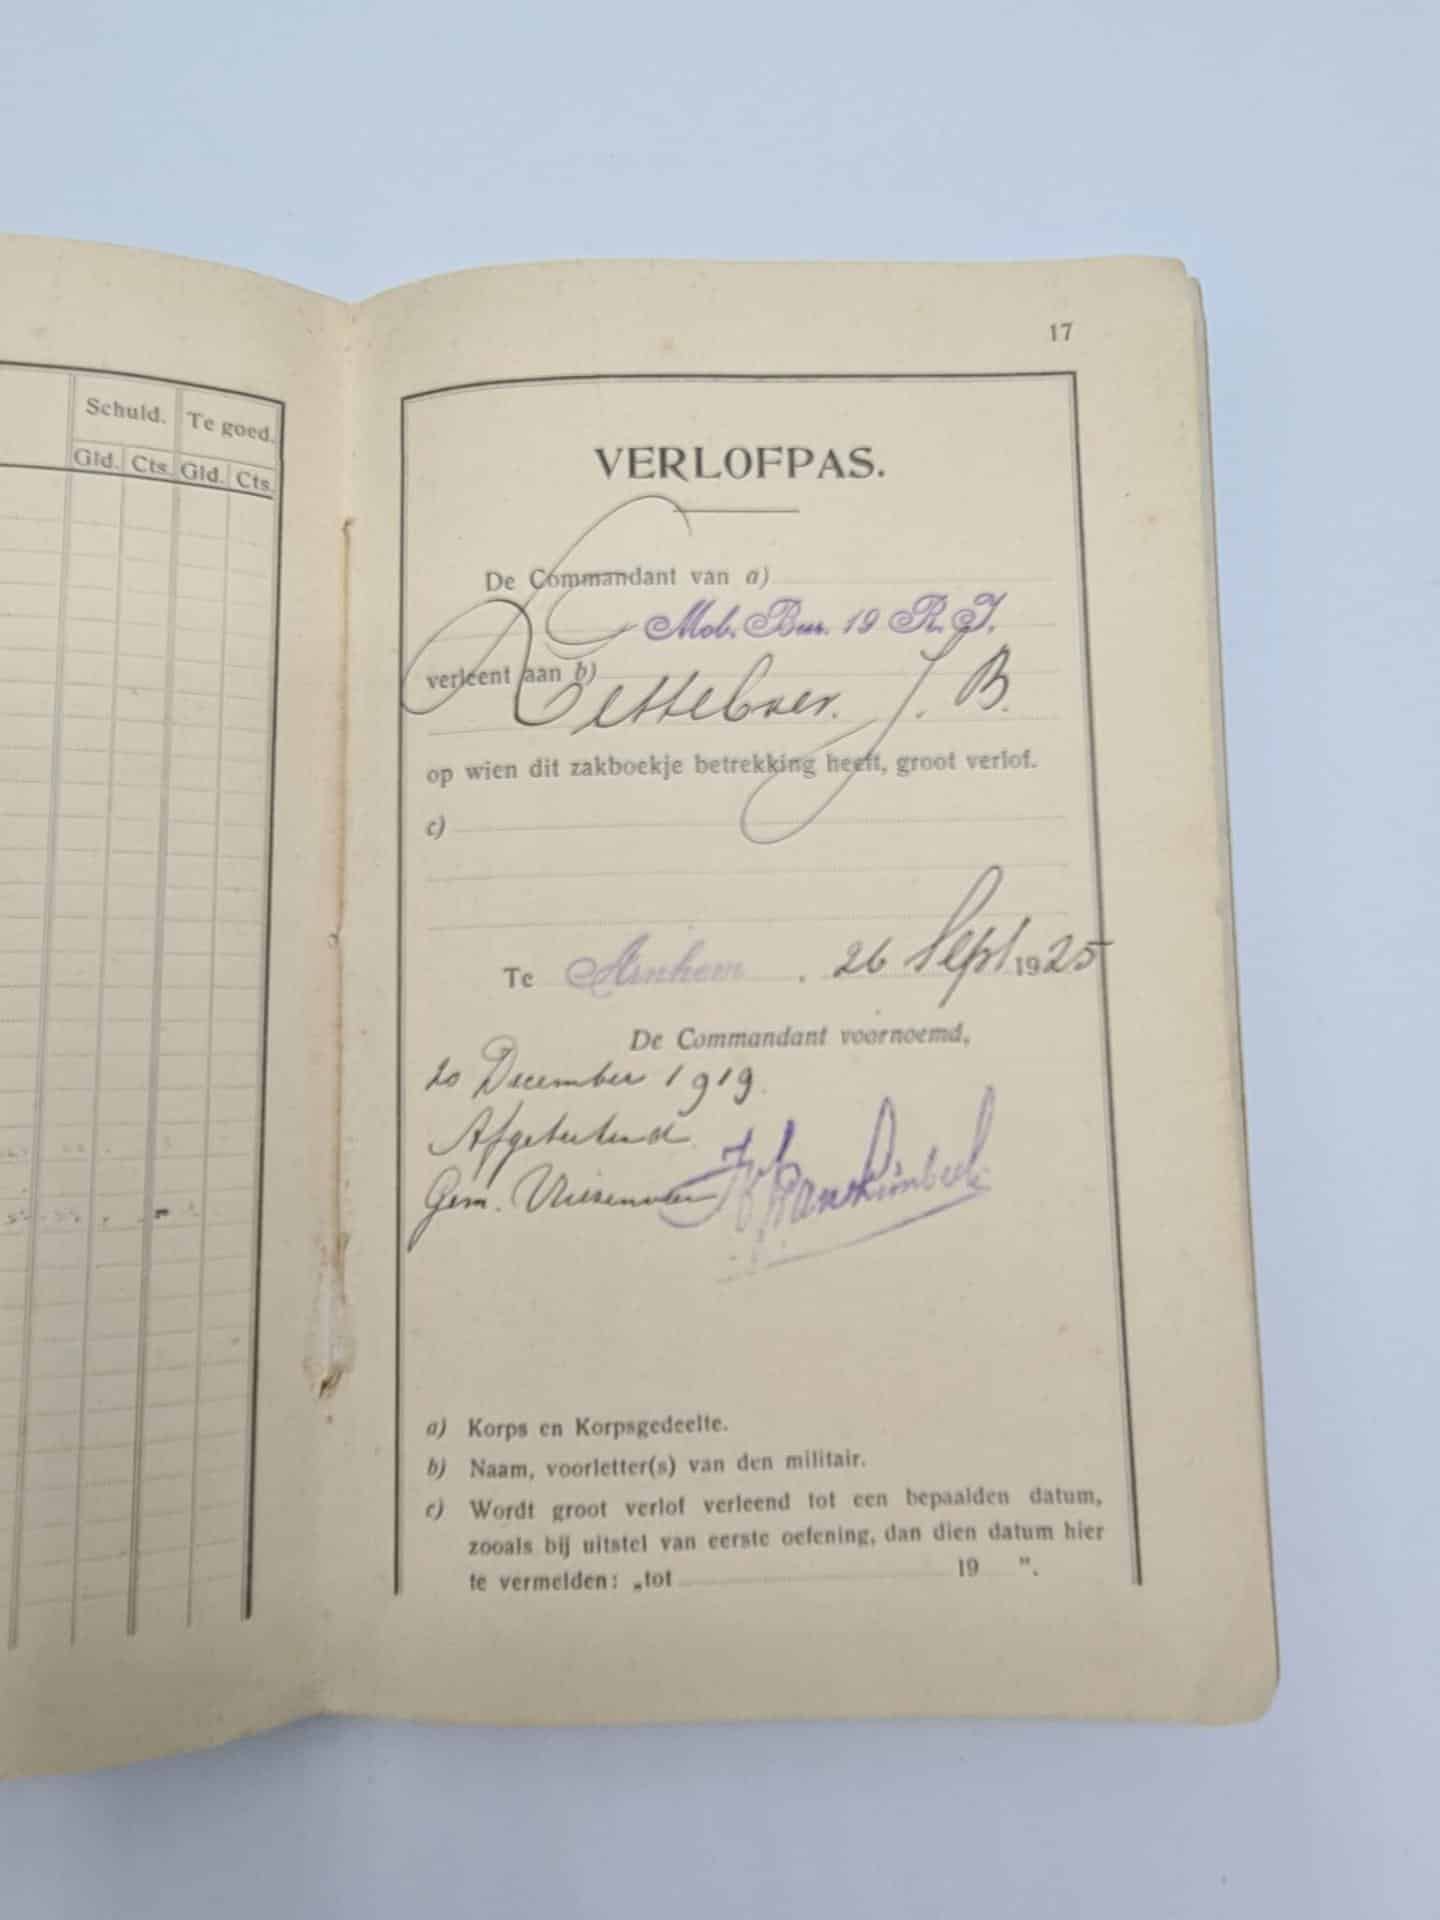 Schuld. Te goed.
Gld. Cts. Gld. Cts.
17
VERLOFPAS.
De Commandant van a)
Mob. Bur. 19 R. I.
verleent aan b)
J. B.
op wien dit zakboekje betrekking heeft, groot verlof.
c)
Te Arnhem . 26 Sept 1925
De Commandant voornoemd,
20 December 1919.
Afgeteekend
Gem.
a) Korps en Korpsgedeelte.
b) Naam, voorletter(s) van den militair.
c) Wordt groot verlof verleend tot een bepaalden datum,
zooals bij uitstel van eerste oefening, dan dien datum hier
te vermelden: „tot 19 ”.